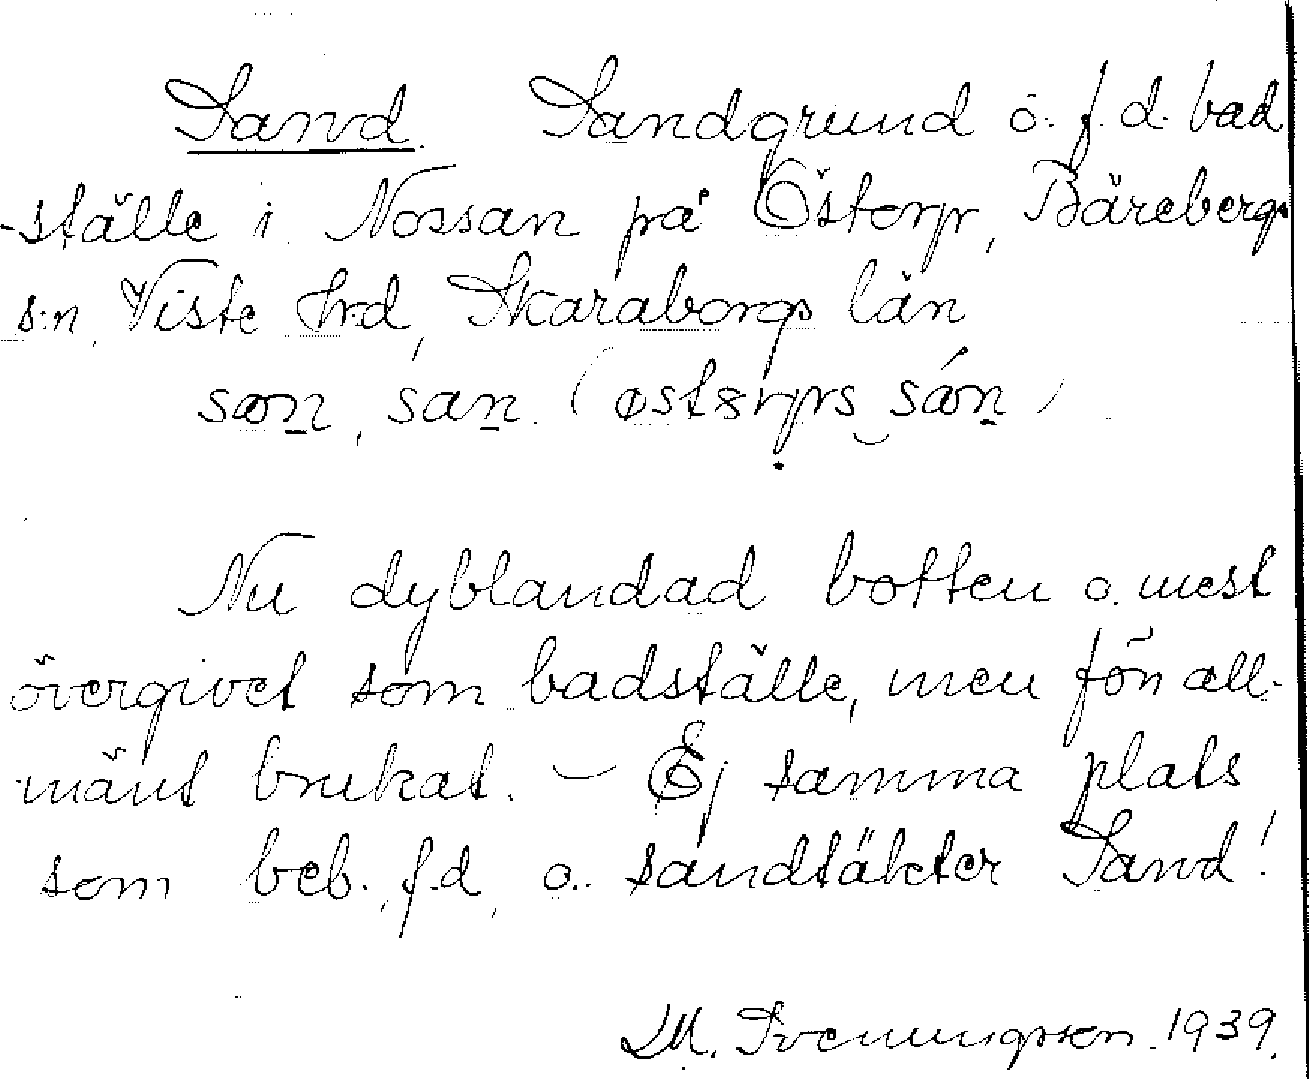 Sand. Sandgrund o. f. d. bad
-ställe i Nossan på Östorp, Bärebergs
s:n, Viste hrd, Skaraborgs län
san, san. (
Nu dyblandad botten o. mest
övergivet som badställe, men förr all-
mänt brukat. – Ej samma plats
som beb. f.d. o. sandtäkter Sand!
M. Svenungsson. 1939.